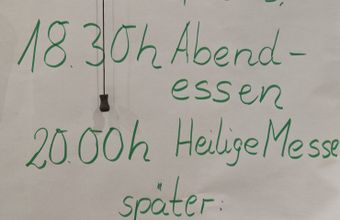 18.30h Abend-
essen
20.00h Heilige Messe
später: